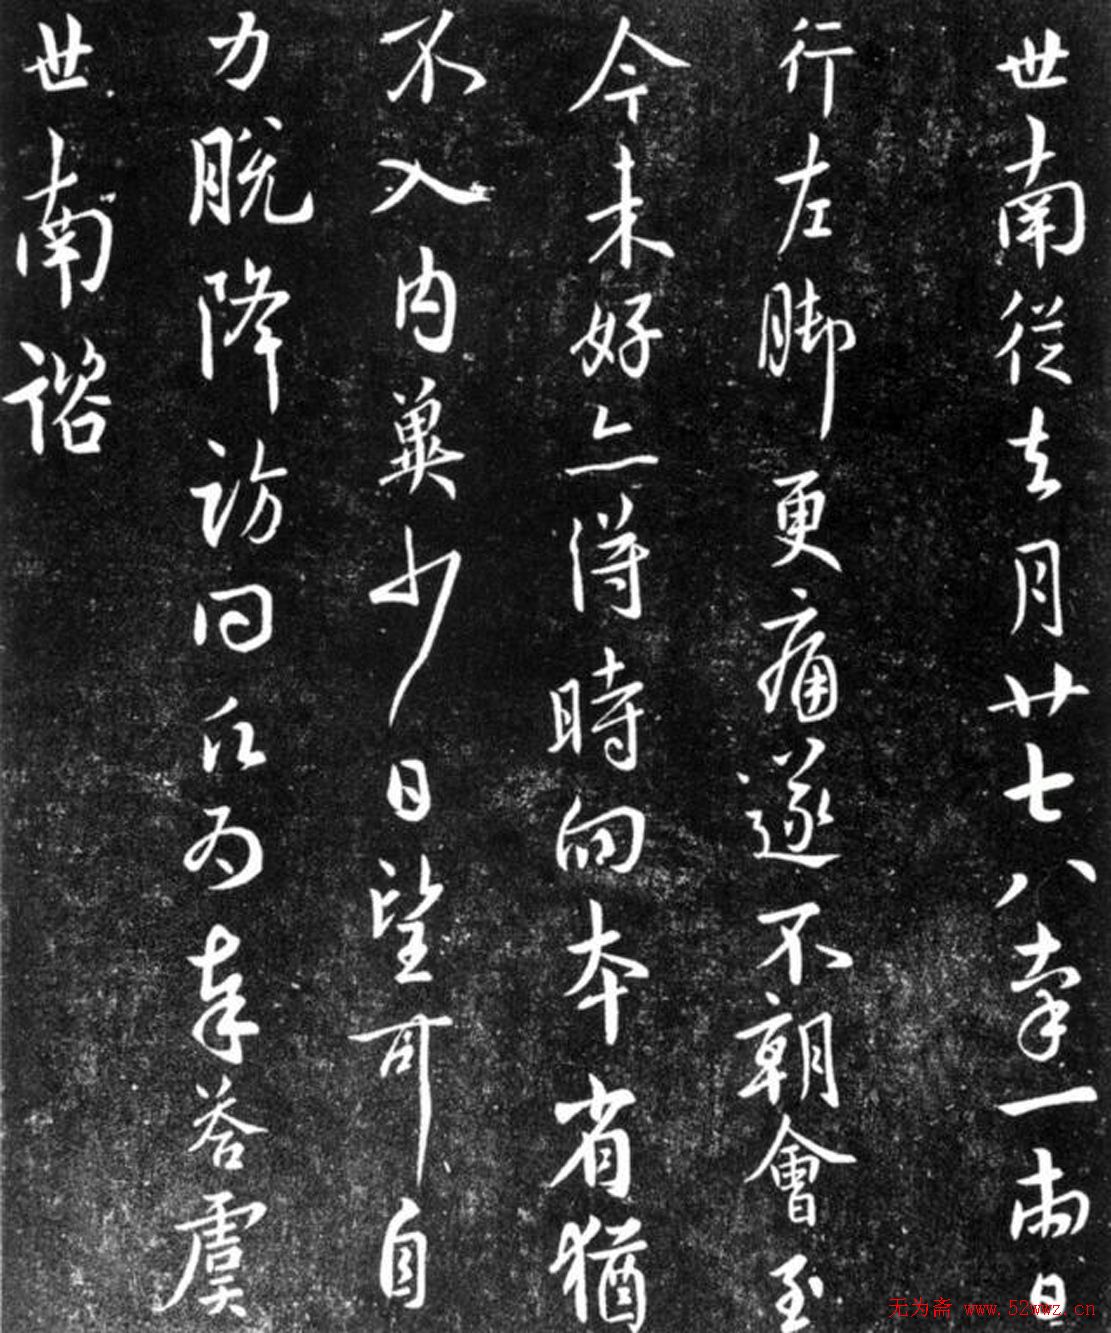 世南從去月廿七八率一兩日
行左脚更痛遂不朝會至
今未好亦得時向本省猶
不入內冀少日望可自
力脱降訪問仁為奉答虞
世南諮
无为斋 www.52wwz.cn